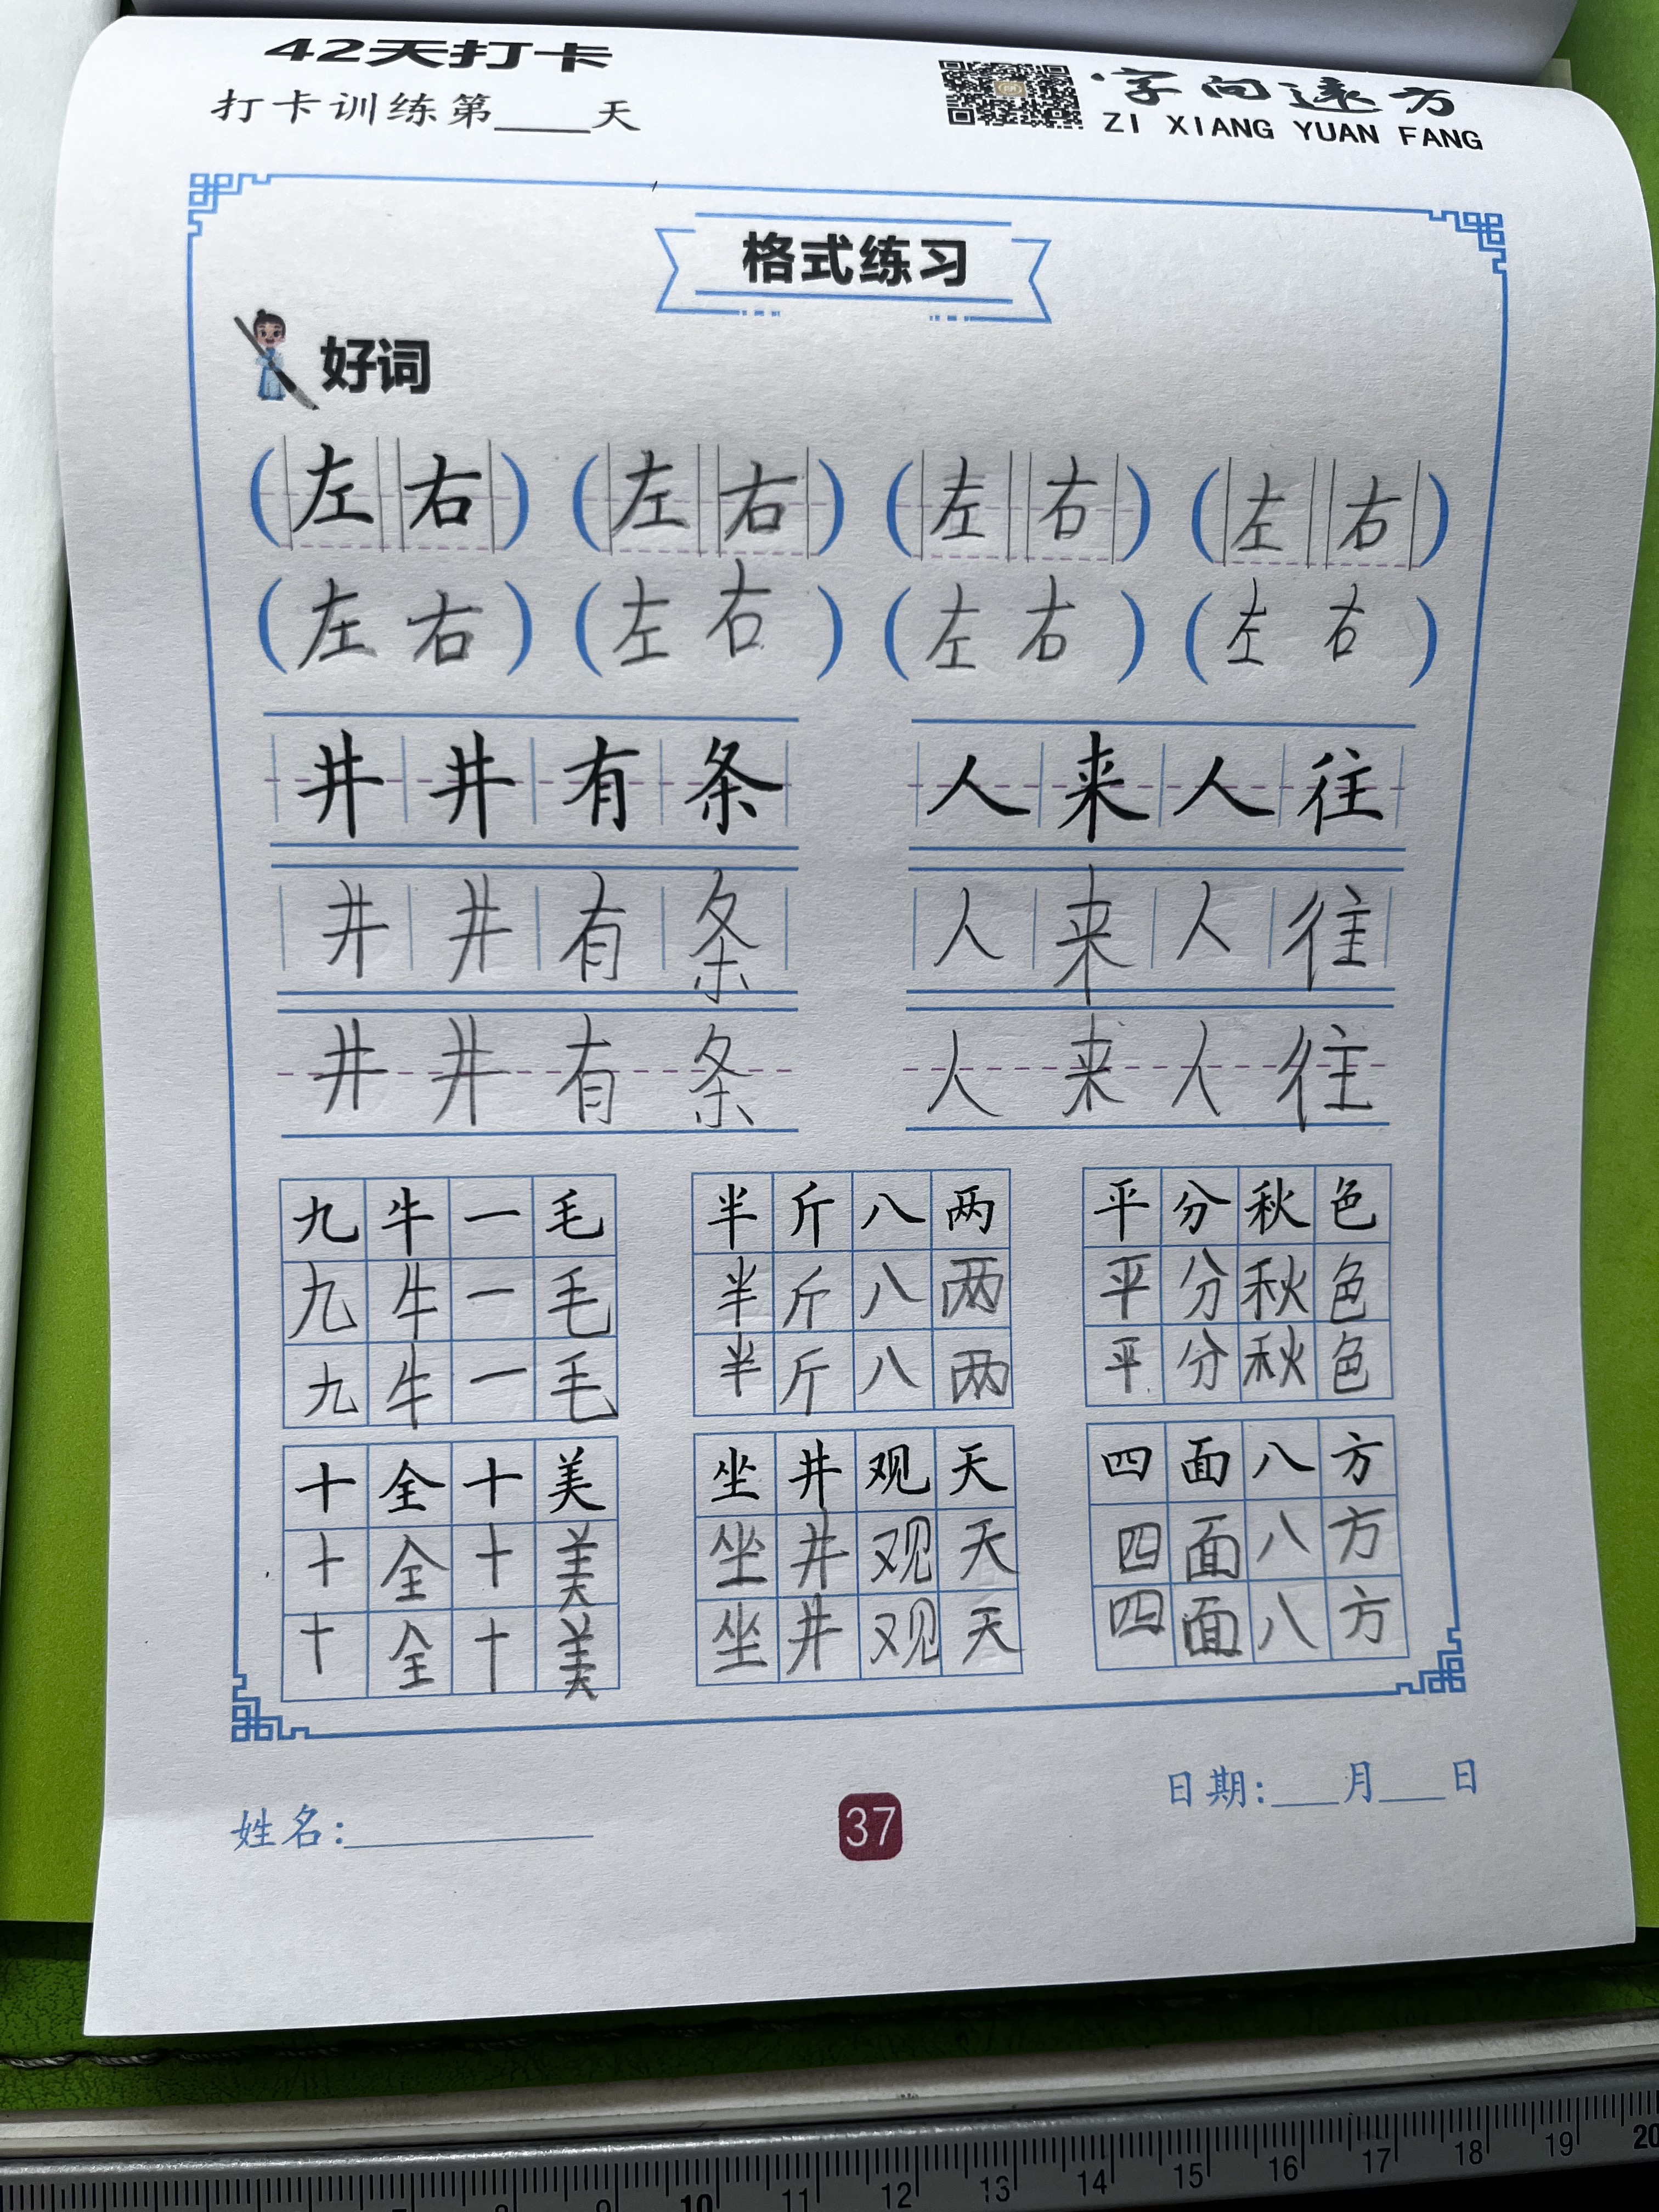 42天打卡
打卡训练第____天
字向远方
ZI XIANG YUAN FANG
格式练习
好词
(左右) (左右) (左右) (左右)
(左右) (左右) (左右) (左右)
井井有条 人来人往
井井有条 人来人往
井井有条 人来人往
九牛一毛 半斤八两 平分秋色
九牛一毛 半斤八两 平分秋色
九牛一毛 半斤八两 平分秋色
十全十美 坐井观天 四面八方
十全十美 坐井观天 四面八方
十全十美 坐井观天 四面八方
姓名:__________
37
日期:___月___日
10 11 12 13 14 15 16 17 18 19 20